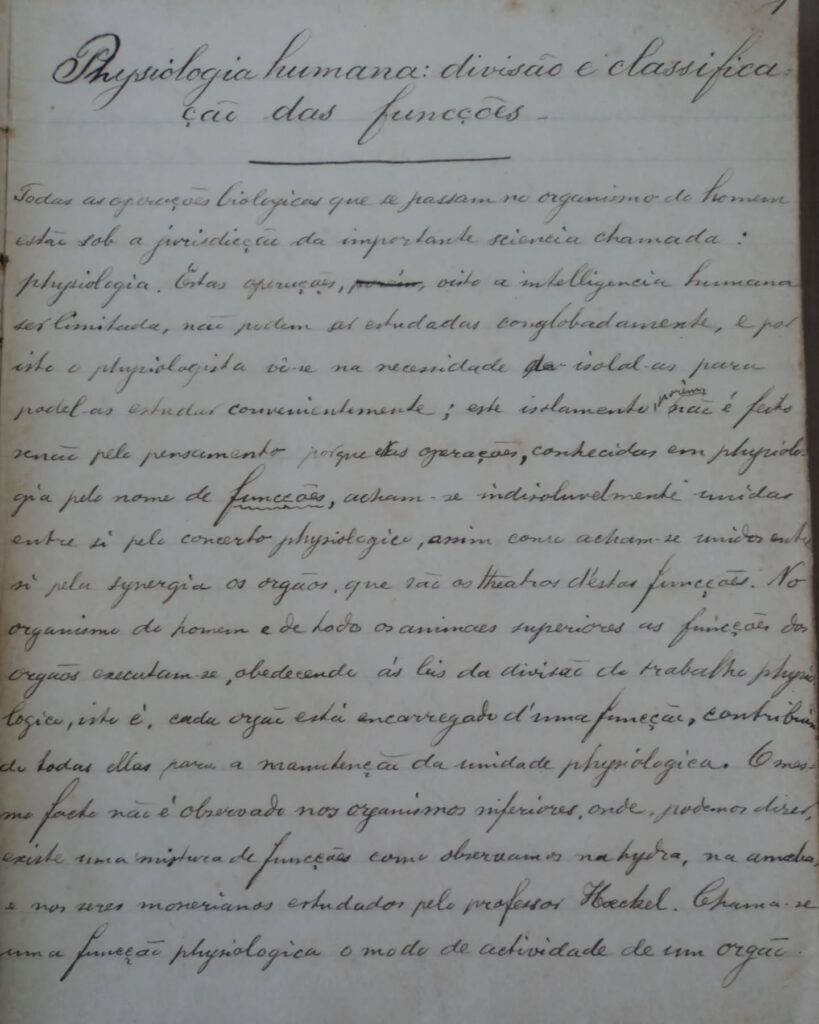 Physiologia humana: divisão e classifica-
ção das funcções -
Todas as operações biologicas que se passam no organismo do homem
estão sob a jurisdicção da importante sciencia chamada :
physiologia. Estas operações, porém, visto a intelligencia humana
ser limitada, não podem ser estudadas conglobadamente, e por
isto o physiologista vê-se na necessidade de isolal-as para
podel-as estudar convenientemente; este isolamento, porém não é feito
senão pelo pensamento porque estas operações, conhecidas em physiolo-
gia pelo nome de funcções, acham-se indisoluvelmente unidas
entre si pelo concerto physiologico, assim como acham-se unidos entre
si pela synergia os orgãos, que são os theatros d'estas funcções. No
organismo do homem e de todo os animaes superiores as funcções dos
orgãos executam-se, obedecendo ás leis da divisão do trabalho physio-
logico, isto é, cada orgão está encarregado d'uma funcção, contribuin
do todas ellas para a manutenção da unidade physiologica. O mes-
mo facto não é observado nos organismos inferiores, onde, podemos dizer,
existe uma mistura de funcções como observamos na hydra, na ameba,
e nos seres monerianos estudados pelo professor Hæckel. Chama-se
uma funcção physiologica o modo de actividade de um orgão.